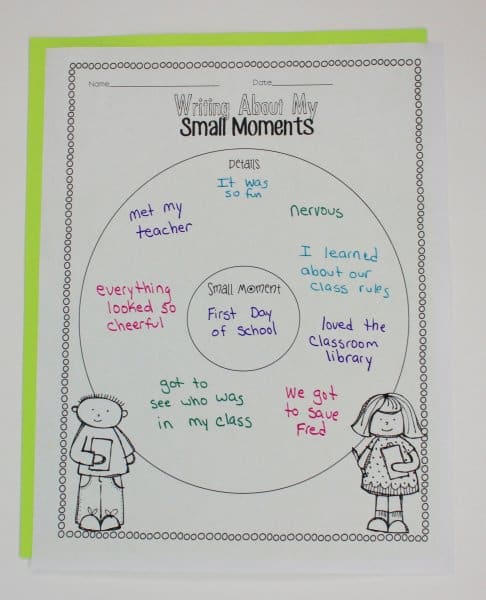 Name Date
Writing About My
Small Moments
Details
It was
so fun
met my
teacher
nervous
I learned
about our
class rules
everything
looked so
cheerful
Small Moment
First Day
of School
loved the
classroom
library
got to
see who was
in my class
We got
to save
Fred